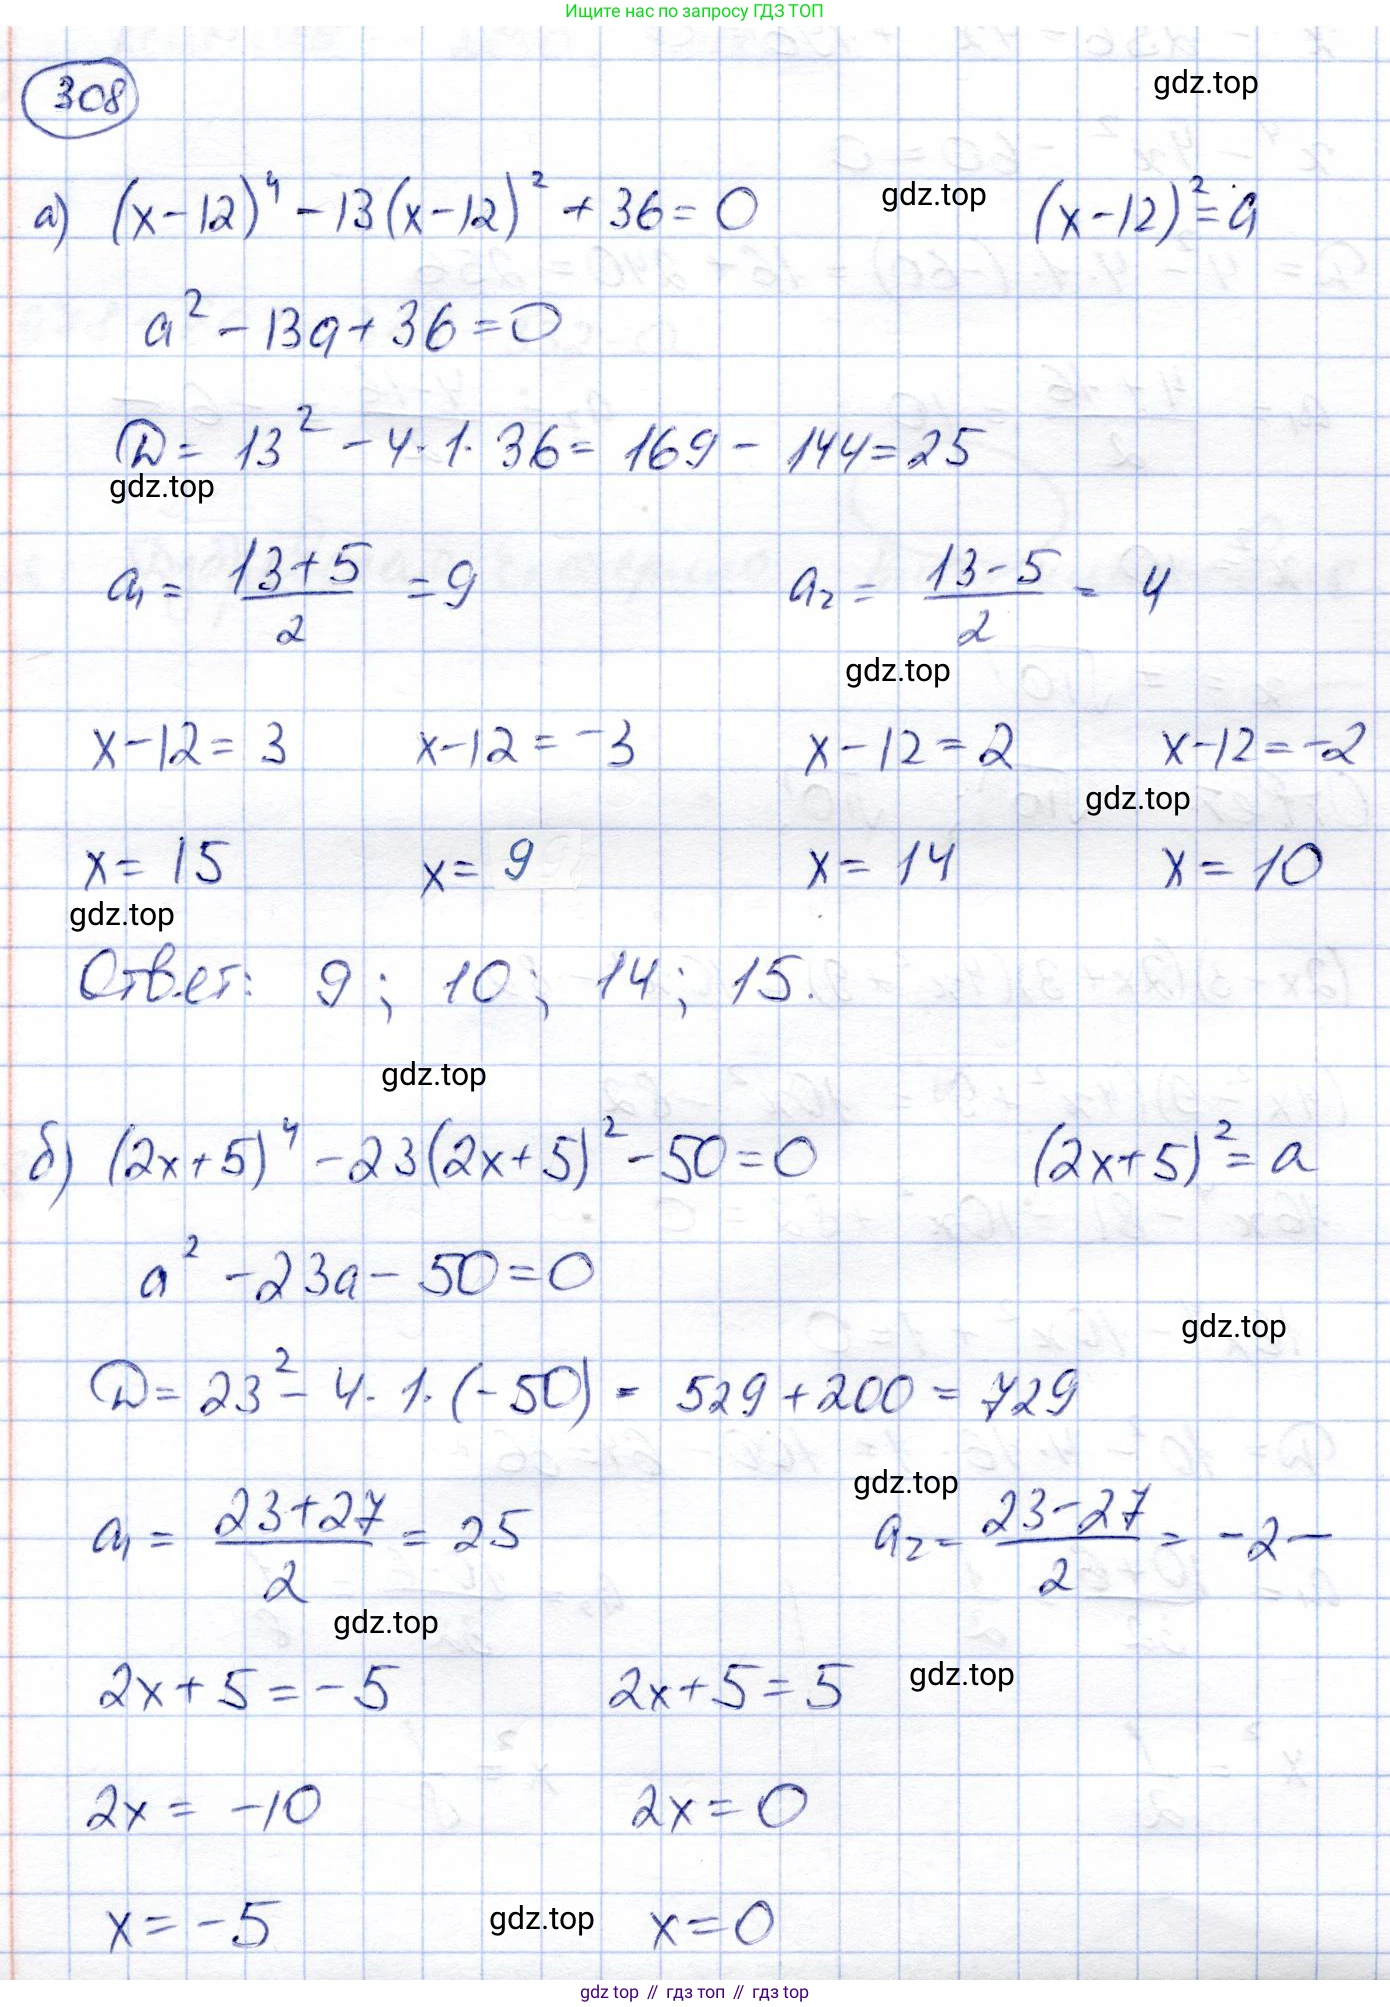 Ищите нас по запросу ГДЗ ТОП
308
gdz.top
а) (x-12)⁴ - 13(x-12)² + 36 = 0 gdz.top (x-12)² = a
a² - 13a + 36 = 0
D = 13² - 4·1·36 = 169 - 144 = 25
gdz.top
a₁ = (13+5)/2 = 9 a₂ = (13-5)/2 = 4
gdz.top
x-12 = 3 x-12 = -3 x-12 = 2 x-12 = -2
gdz.top
x = 15 x = 9 x = 14 x = 10
gdz.top
Ответ: 9; 10; 14; 15.
gdz.top
б) (2x+5)⁴ - 23(2x+5)² - 50 = 0 (2x+5)² = a
a² - 23a - 50 = 0
gdz.top
D = 23² - 4·1·(-50) = 529 + 200 = 729
gdz.top
a₁ = (23+27)/2 = 25 a₂ = (23-27)/2 = -2 -
gdz.top
2x+5 = -5 2x+5 = 5 gdz.top
2x = -10 2x = 0
x = -5 gdz.top x = 0
gdz.top // гдз.топ // гдз.top